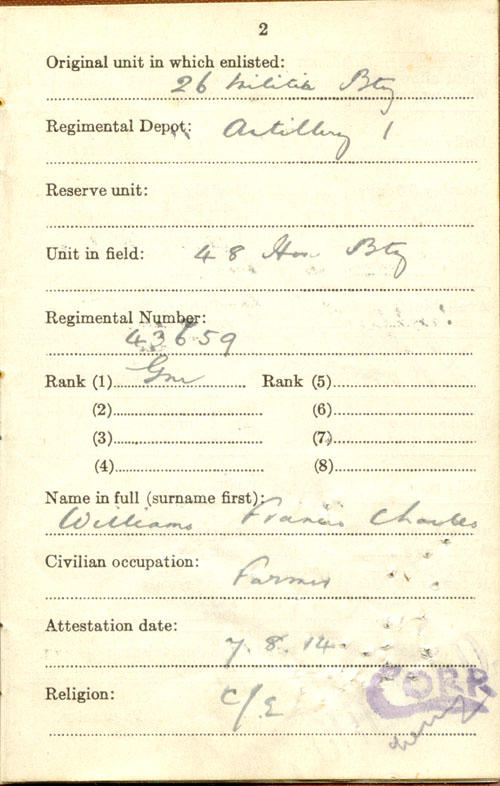 2
Original unit in which enlisted:
26 Militia Bty
Regimental Depot: Artillery 1
Reserve unit:
Unit in field: 48 How Bty
Regimental Number:
43659
Rank (1) Gnr Rank (5)
(2) (6)
(3) (7)
(4) (8)
Name in full (surname first):
Williams Francis Charles
Civilian occupation:
Farmer
Attestation date:
7. 8. 14
Religion:
C/E
CORR